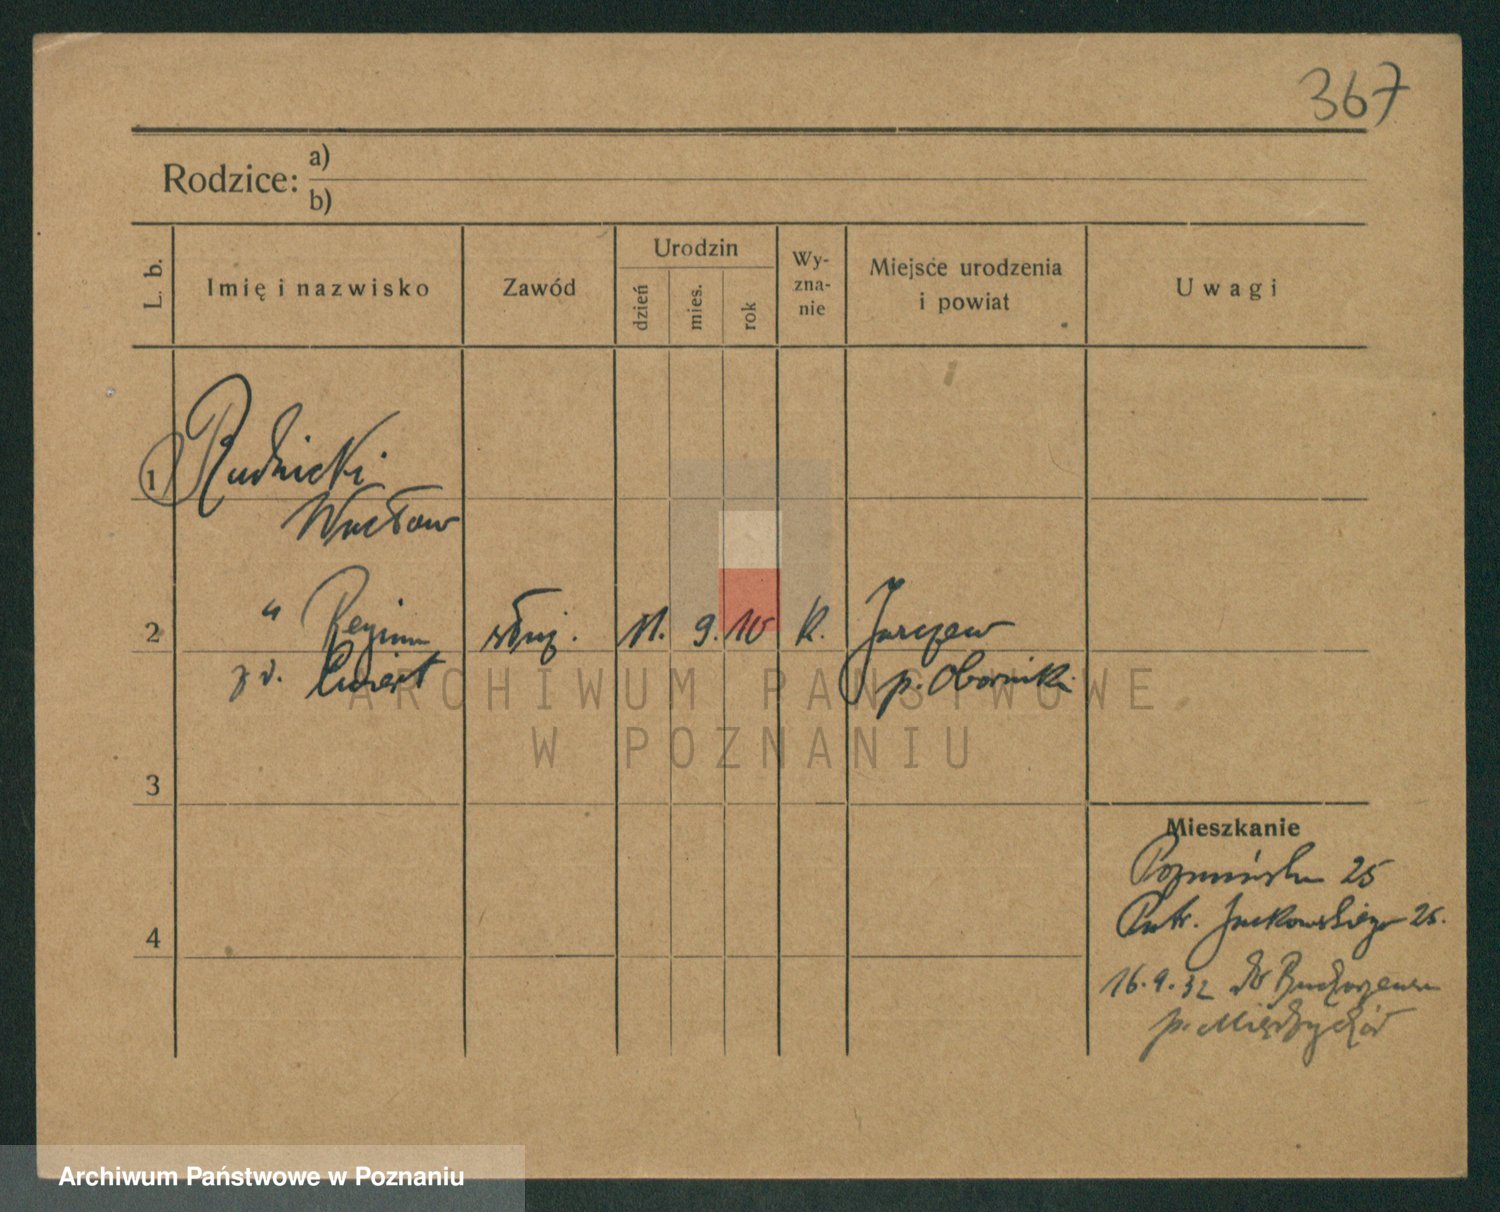 367
Rodzice: a)
b)
L. b.
Imię i nazwisko
Zawód
Urodzin
dzień
mies.
rok
Wy-
zna-
nie
Miejsce urodzenia
i powiat
Uwagi
1 Rudnicki
Wacław
2 " Regina służ. 11. 9. 10 k. Jaryszewo
p. Oborniki
3
Mieszkanie
Poznańska 25
4 Patr. Jackowskiego 25.
16.9.32 do
p. Międzychód
ARCHIWUM PAŃSTWOWE
W POZNANIU
Archiwum Państwowe w Poznaniu